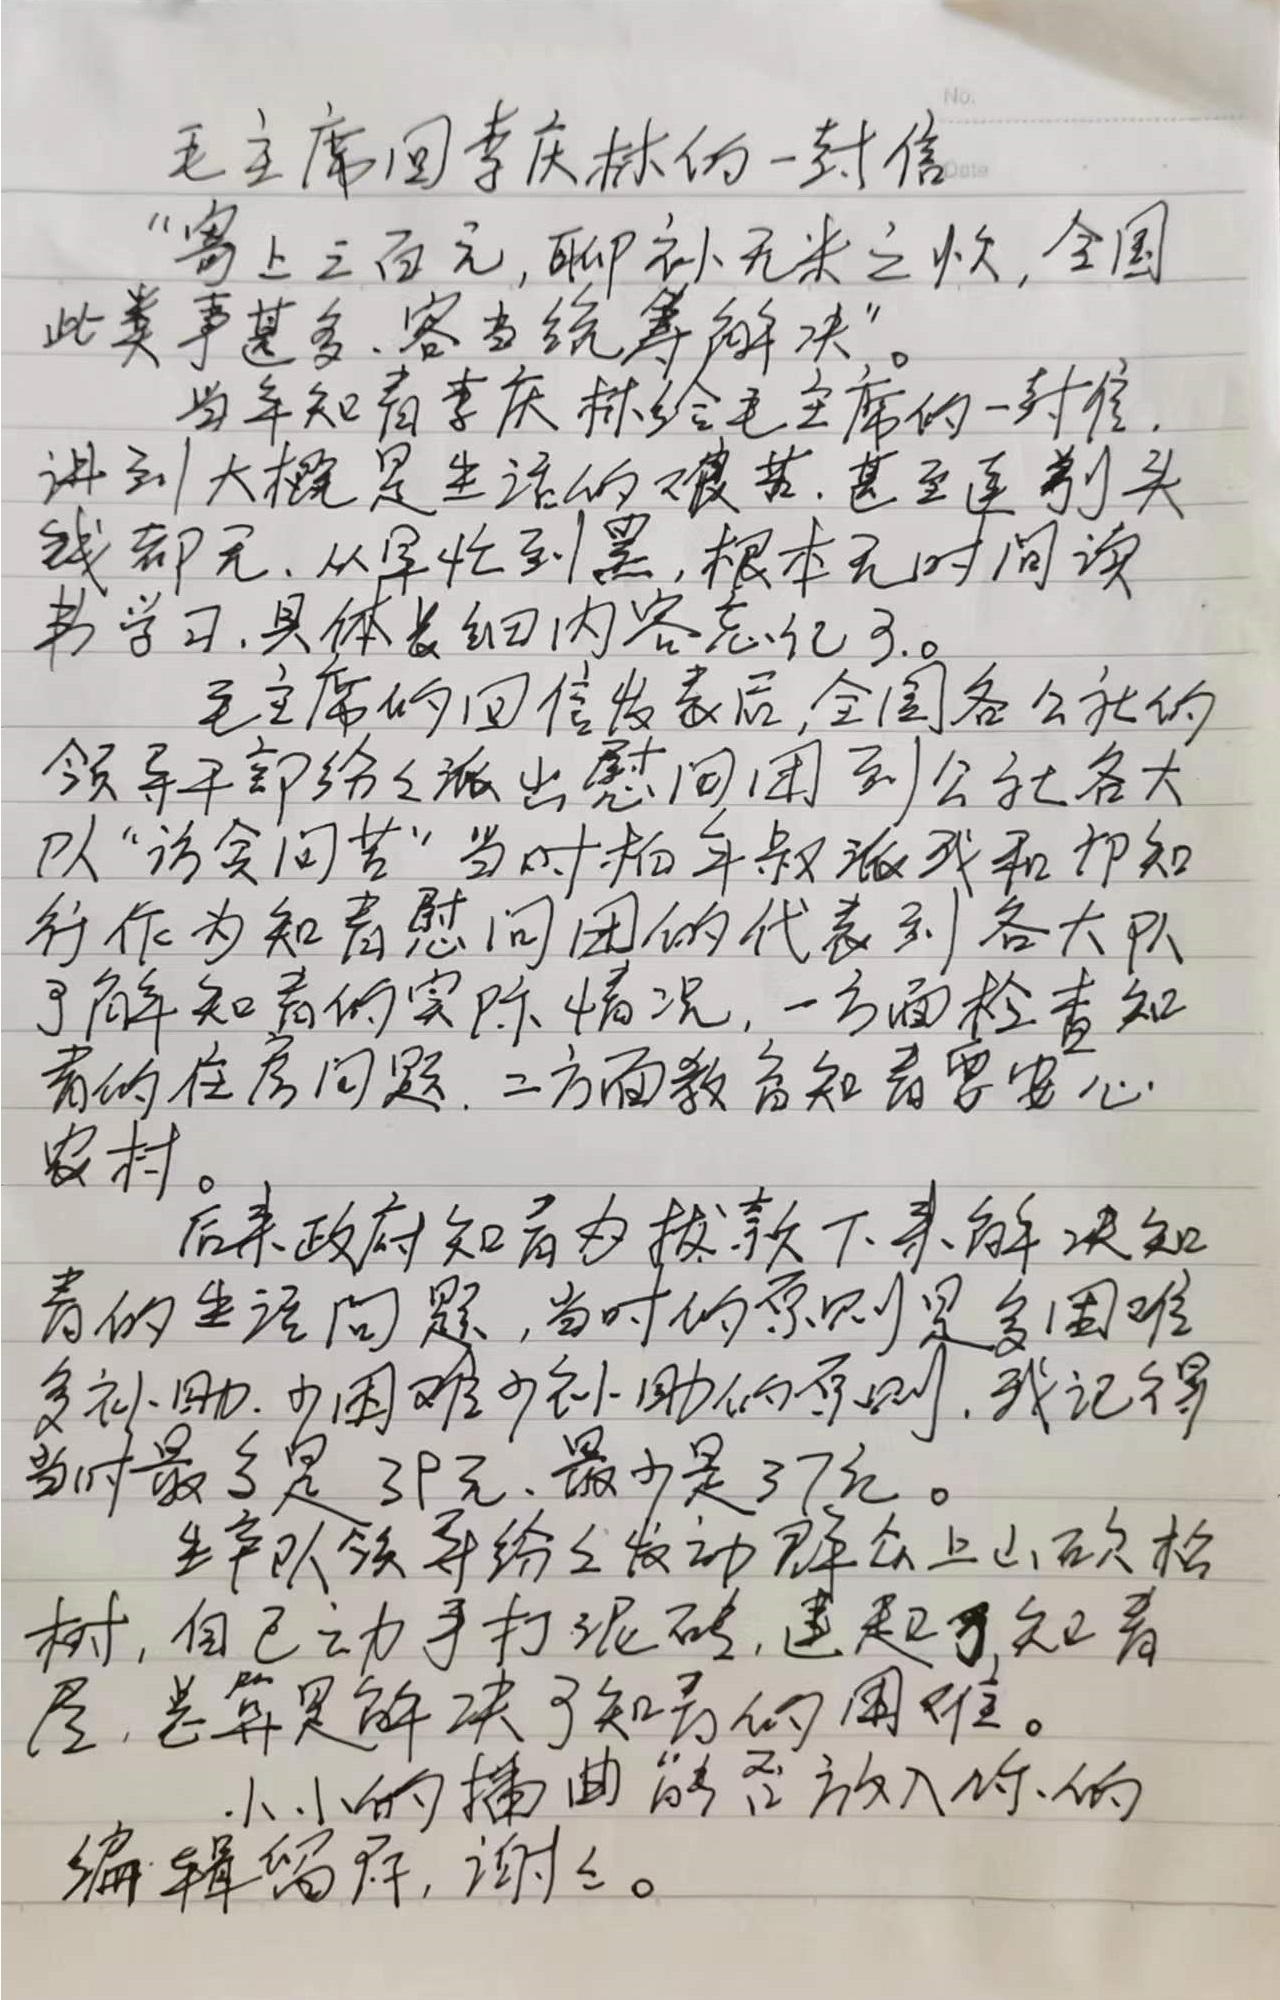 No.
Date
毛主席回李庆林的一封信
“寄上三百元，聊补无米之炊，全国
此类事甚多、容当统筹解决”。
当年知青李庆林给毛主席的一封信，
讲到大概是生活的艰苦、甚至连剃头
钱都无、从早忙到黑，根本无时间读
书学习、具体长细内容忘记了。
毛主席的回信发表后，全国各公社的
领导干部纷々派出慰问团到公社各大
队“访贫问苦”当时柏年叔派我和邝知
行作为知青慰问团的代表到各大队
了解知青的实际情况，一方面检查知
青的住房问题、二方面教育知青要安心
农村。
后来政府知青办拔款下来解决知
青的生活问题，当时的原则是多困难
多补助、少困难少补助的原则、我记得
当时最多是39元、最少是37元。
生产队领导纷々发动群众上山砍松
树，自己动手打泥砖，建起了知青
屋，总算是解决了知青的困难。
小小的插曲能否放入你的
编辑留存，谢々。